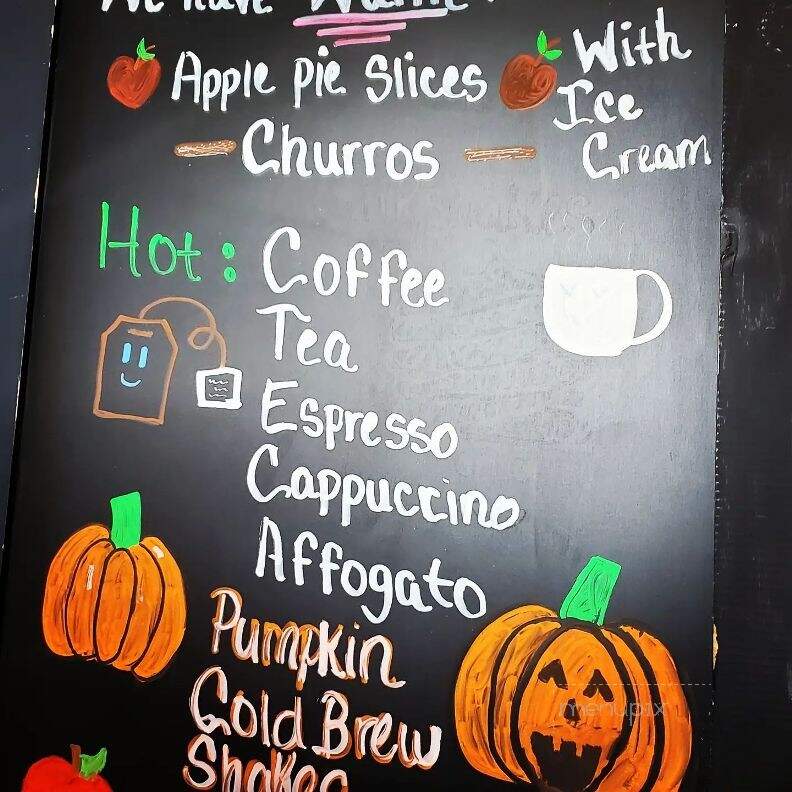 We have Warm
Apple pie Slices
With
Ice
Cream
Churros
Hot: Coffee
Tea
Espresso
Cappuccino
Affogato
Pumpkin
Cold Brew
Shakes
menupix